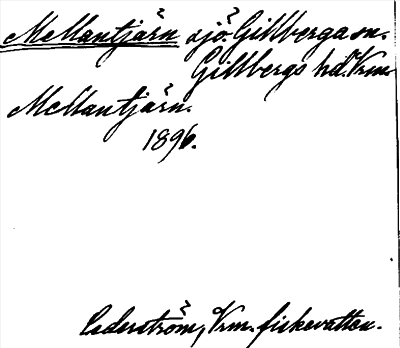 Mellantjärn sjö. Gillberga sn.
Gillbergs hd. Vrm.
Mellantjärn.
1896.
Cederström, Vrm. fiskevatten.